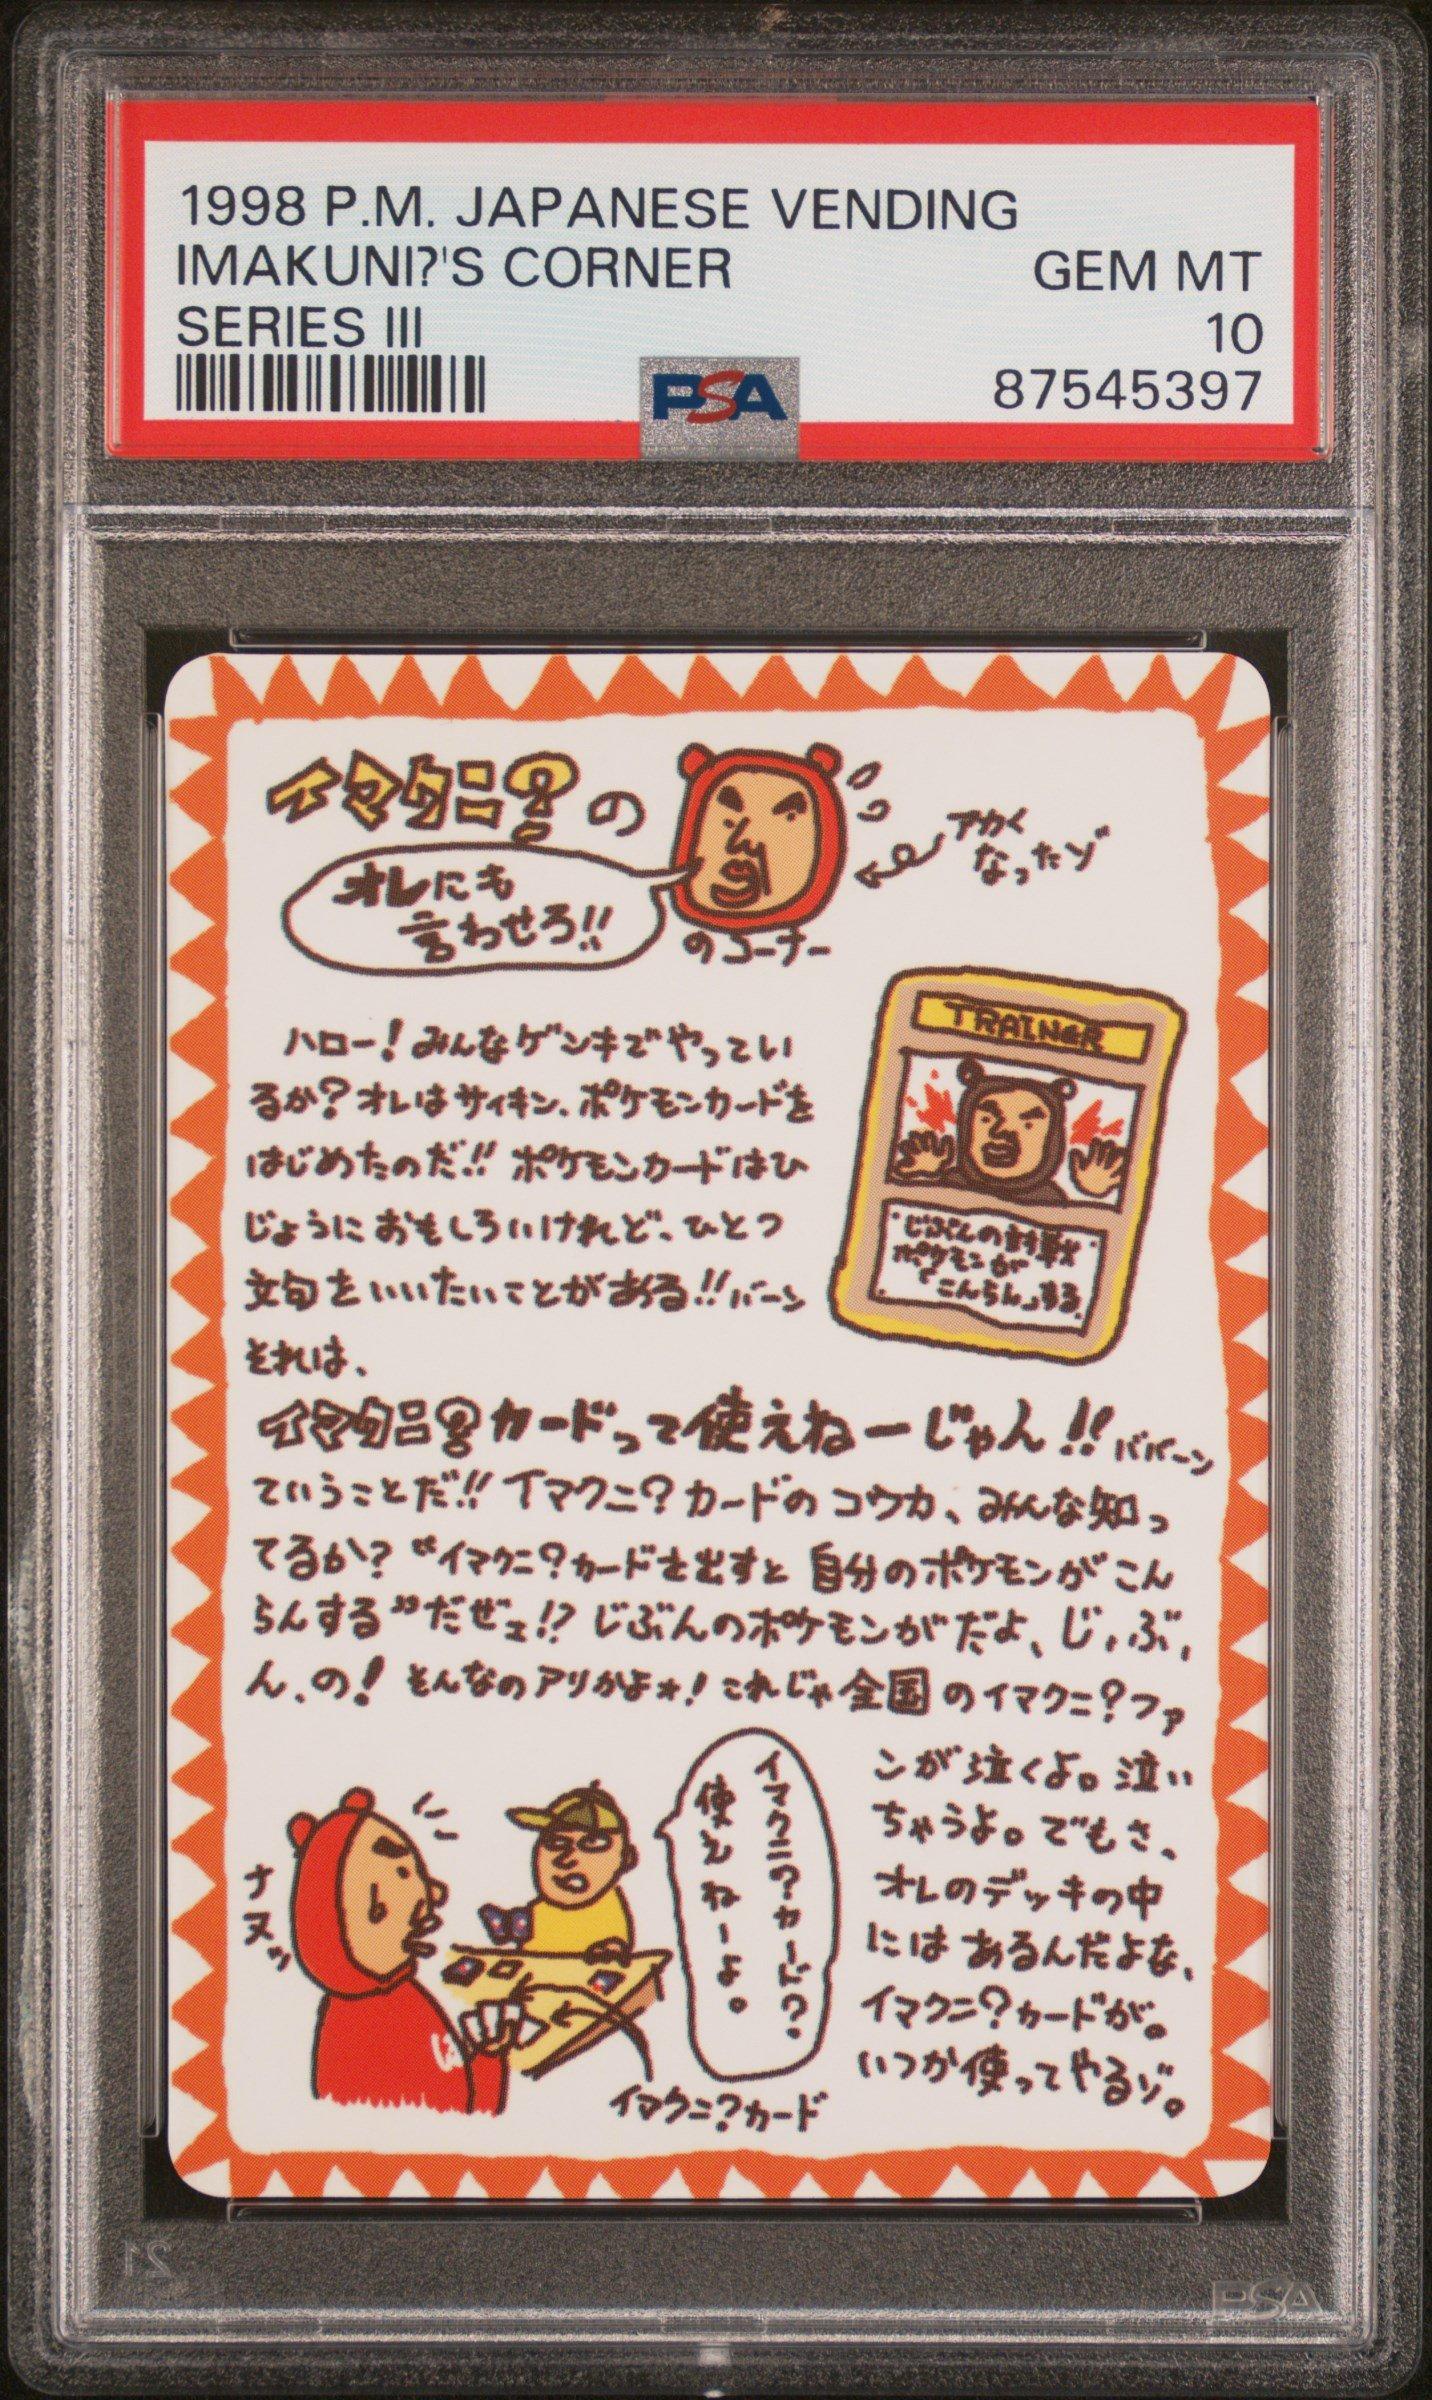 1998 P.M. JAPANESE VENDING
IMAKUNI?'S CORNER
GEM MT
SERIES III
10
PSA
87545397
イマクニ?の
アカく
なったゾ
オレにも
言わせろ!!
のコーナー
TRAINER
じぶんの対戦
ポケモンが
「こんらん」する。
ハロー!みんなゲンキでやってい
るか?オレはサイキン、ポケモンカードを
はじめたのだ!!ポケモンカードはひ
じょうにおもしろいけれど、ひとつ
文句をいいたいことがある!!バーン
それは、
イマクニ?カードって使えねーじゃん!!ババーン
ていうことだ!!イマクニ?カードのコウカ、みんな知っ
てるか?“イマクニ?カードを出すと自分のポケモンがこん
らんする”だぜェ!?じぶんのポケモンがだよ、じ,ぶ,
ん、の!そんなのアリかよォ!これじゃ全国のイマクニ?ファ
ンが泣くよ。泣い
ちゃうよ。でもさ、
オレのデッキの中
にはあるんだよな、
イマクニ?カードが。
いつか使ってやるゾ。
イマクニ?カード?
使えねーよ。
ナヌッ
イマクニ?カード
21
PSA